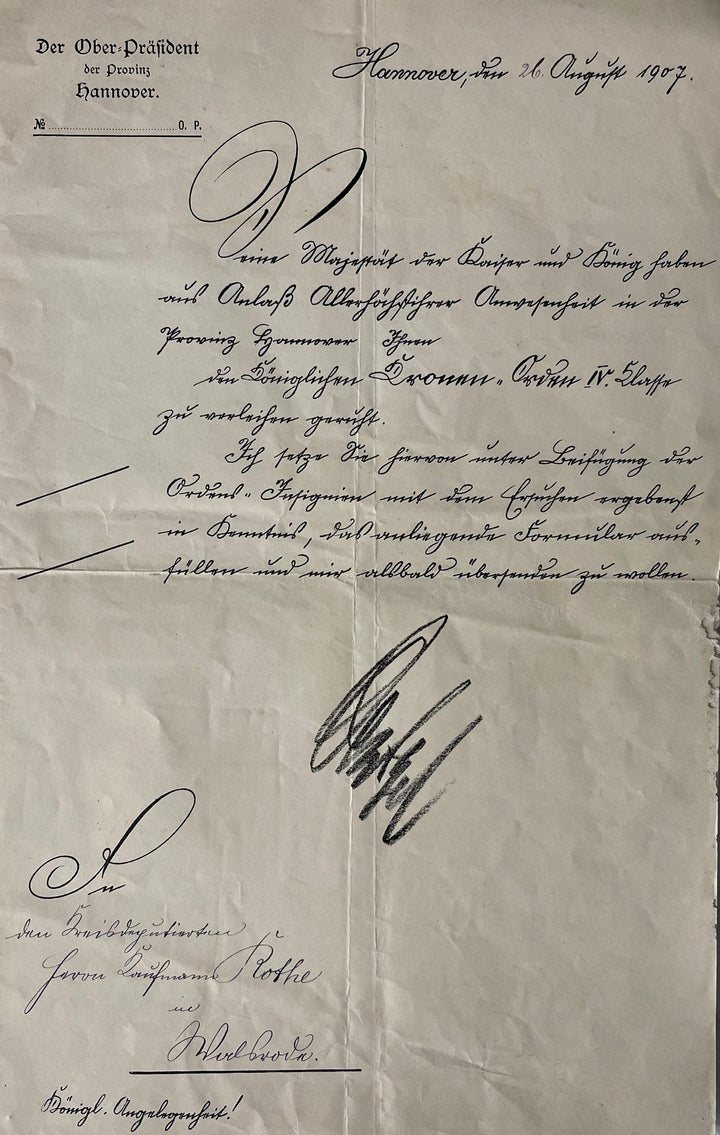 Der Ober-Präsident
der Provinz
Hannover.
№ O. P.
Hannover, den 26. August 1907.
Seine Majestät der Kaiser und König haben
aus Anlaß Allerhöchstihrer Anwesenheit in der
Provinz Hannover Ihnen
den Königlichen Kronen-Orden IV. Classe
zu verleihen geruht.
Ich setze Sie hiervon unter Beifügung der
Ordens-Insignien mit dem Ersuchen ergebenst
in Kenntnis, das anliegende Formular aus-
füllen und mir alsbald übersenden zu wollen.
An
den Kreisdeputierten
Herrn Kaufmann Rothe
in
Walsrode.
Königl. Angelegenheit!